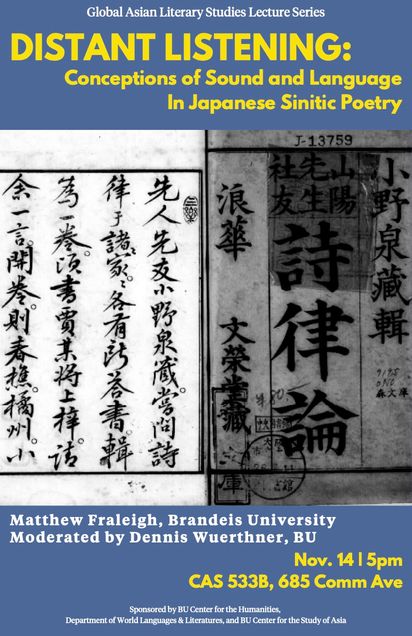 Global Asian Literary Studies Lecture Series
DISTANT LISTENING:
Conceptions of Sound and Language
In Japanese Sinitic Poetry
J-13759
小野泉藏輯
山陽
先生
社友
詩律論
浪華 文榮堂藏
先人先友小野泉藏嘗問詩
律于諸家。各有所荅書輯
為一卷。頃書賈某將上梓請
余一言。開卷則春樵橘州小
Matthew Fraleigh, Brandeis University
Moderated by Dennis Wuerthner, BU
Nov. 14 | 5pm
CAS 533B, 685 Comm Ave
Sponsored by BU Center for the Humanities,
Department of World Languages & Literatures, and BU Center for the Study of Asia